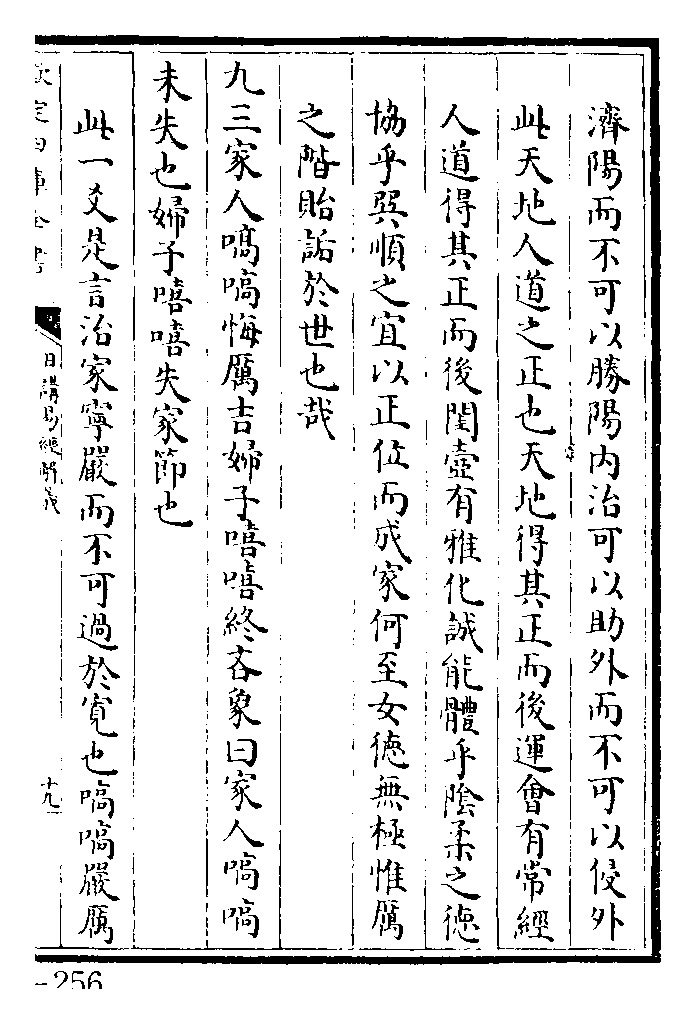 濟陽而不可以勝陽内治可以助外而不可以侵外
此天地人道之正也天地得其正而後運會有常經
人道得其正而後閨壼有雅化誠能體乎陰柔之德
協乎巽順之宜以正位而成家何至女德無極惟厲
之階貽詬於世也哉
九三家人嗃嗃悔厲吉婦子嘻嘻終吝象曰家人嗃嗃
未失也婦子嘻嘻失家節也
此一爻是言治家寧嚴而不可過於寛也嗃嗃嚴厲
欽定四庫全書
日講易經解義
十九
-256